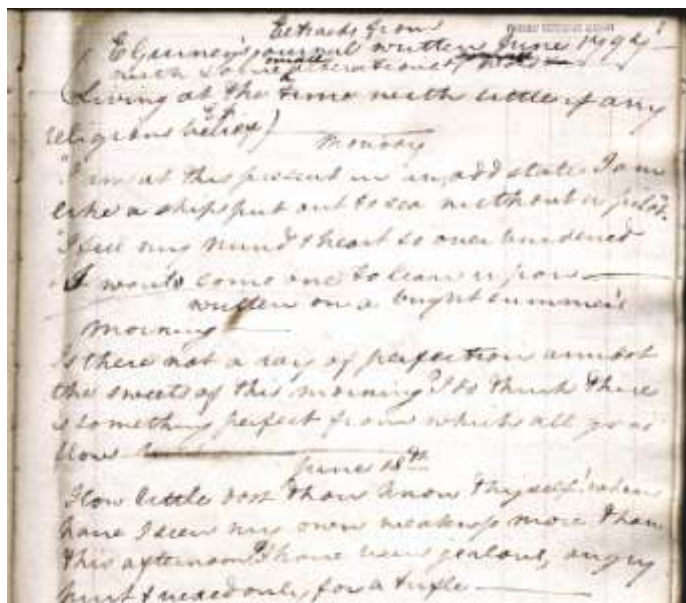 Extracts from
E Gurney's journal written June 1797
with some small alterations
(Living at the time with little if any
religious belief)
Monday
"I am at this present in an odd state I am
like a ship put out to sea without a pilot.
I feel my mind & heart so over burdened
I want some one to lean upon
written on a bright summer's
morning
Is there not a ray of perfection amidst
the sweets of this morning? I do think there
is something perfect from which all good
flows
June 18th
How little dost thou know thyself! when
have I seen my own weakness more than
this afternoon? I have been jealous, angry
hurt & vexed only for a trifle